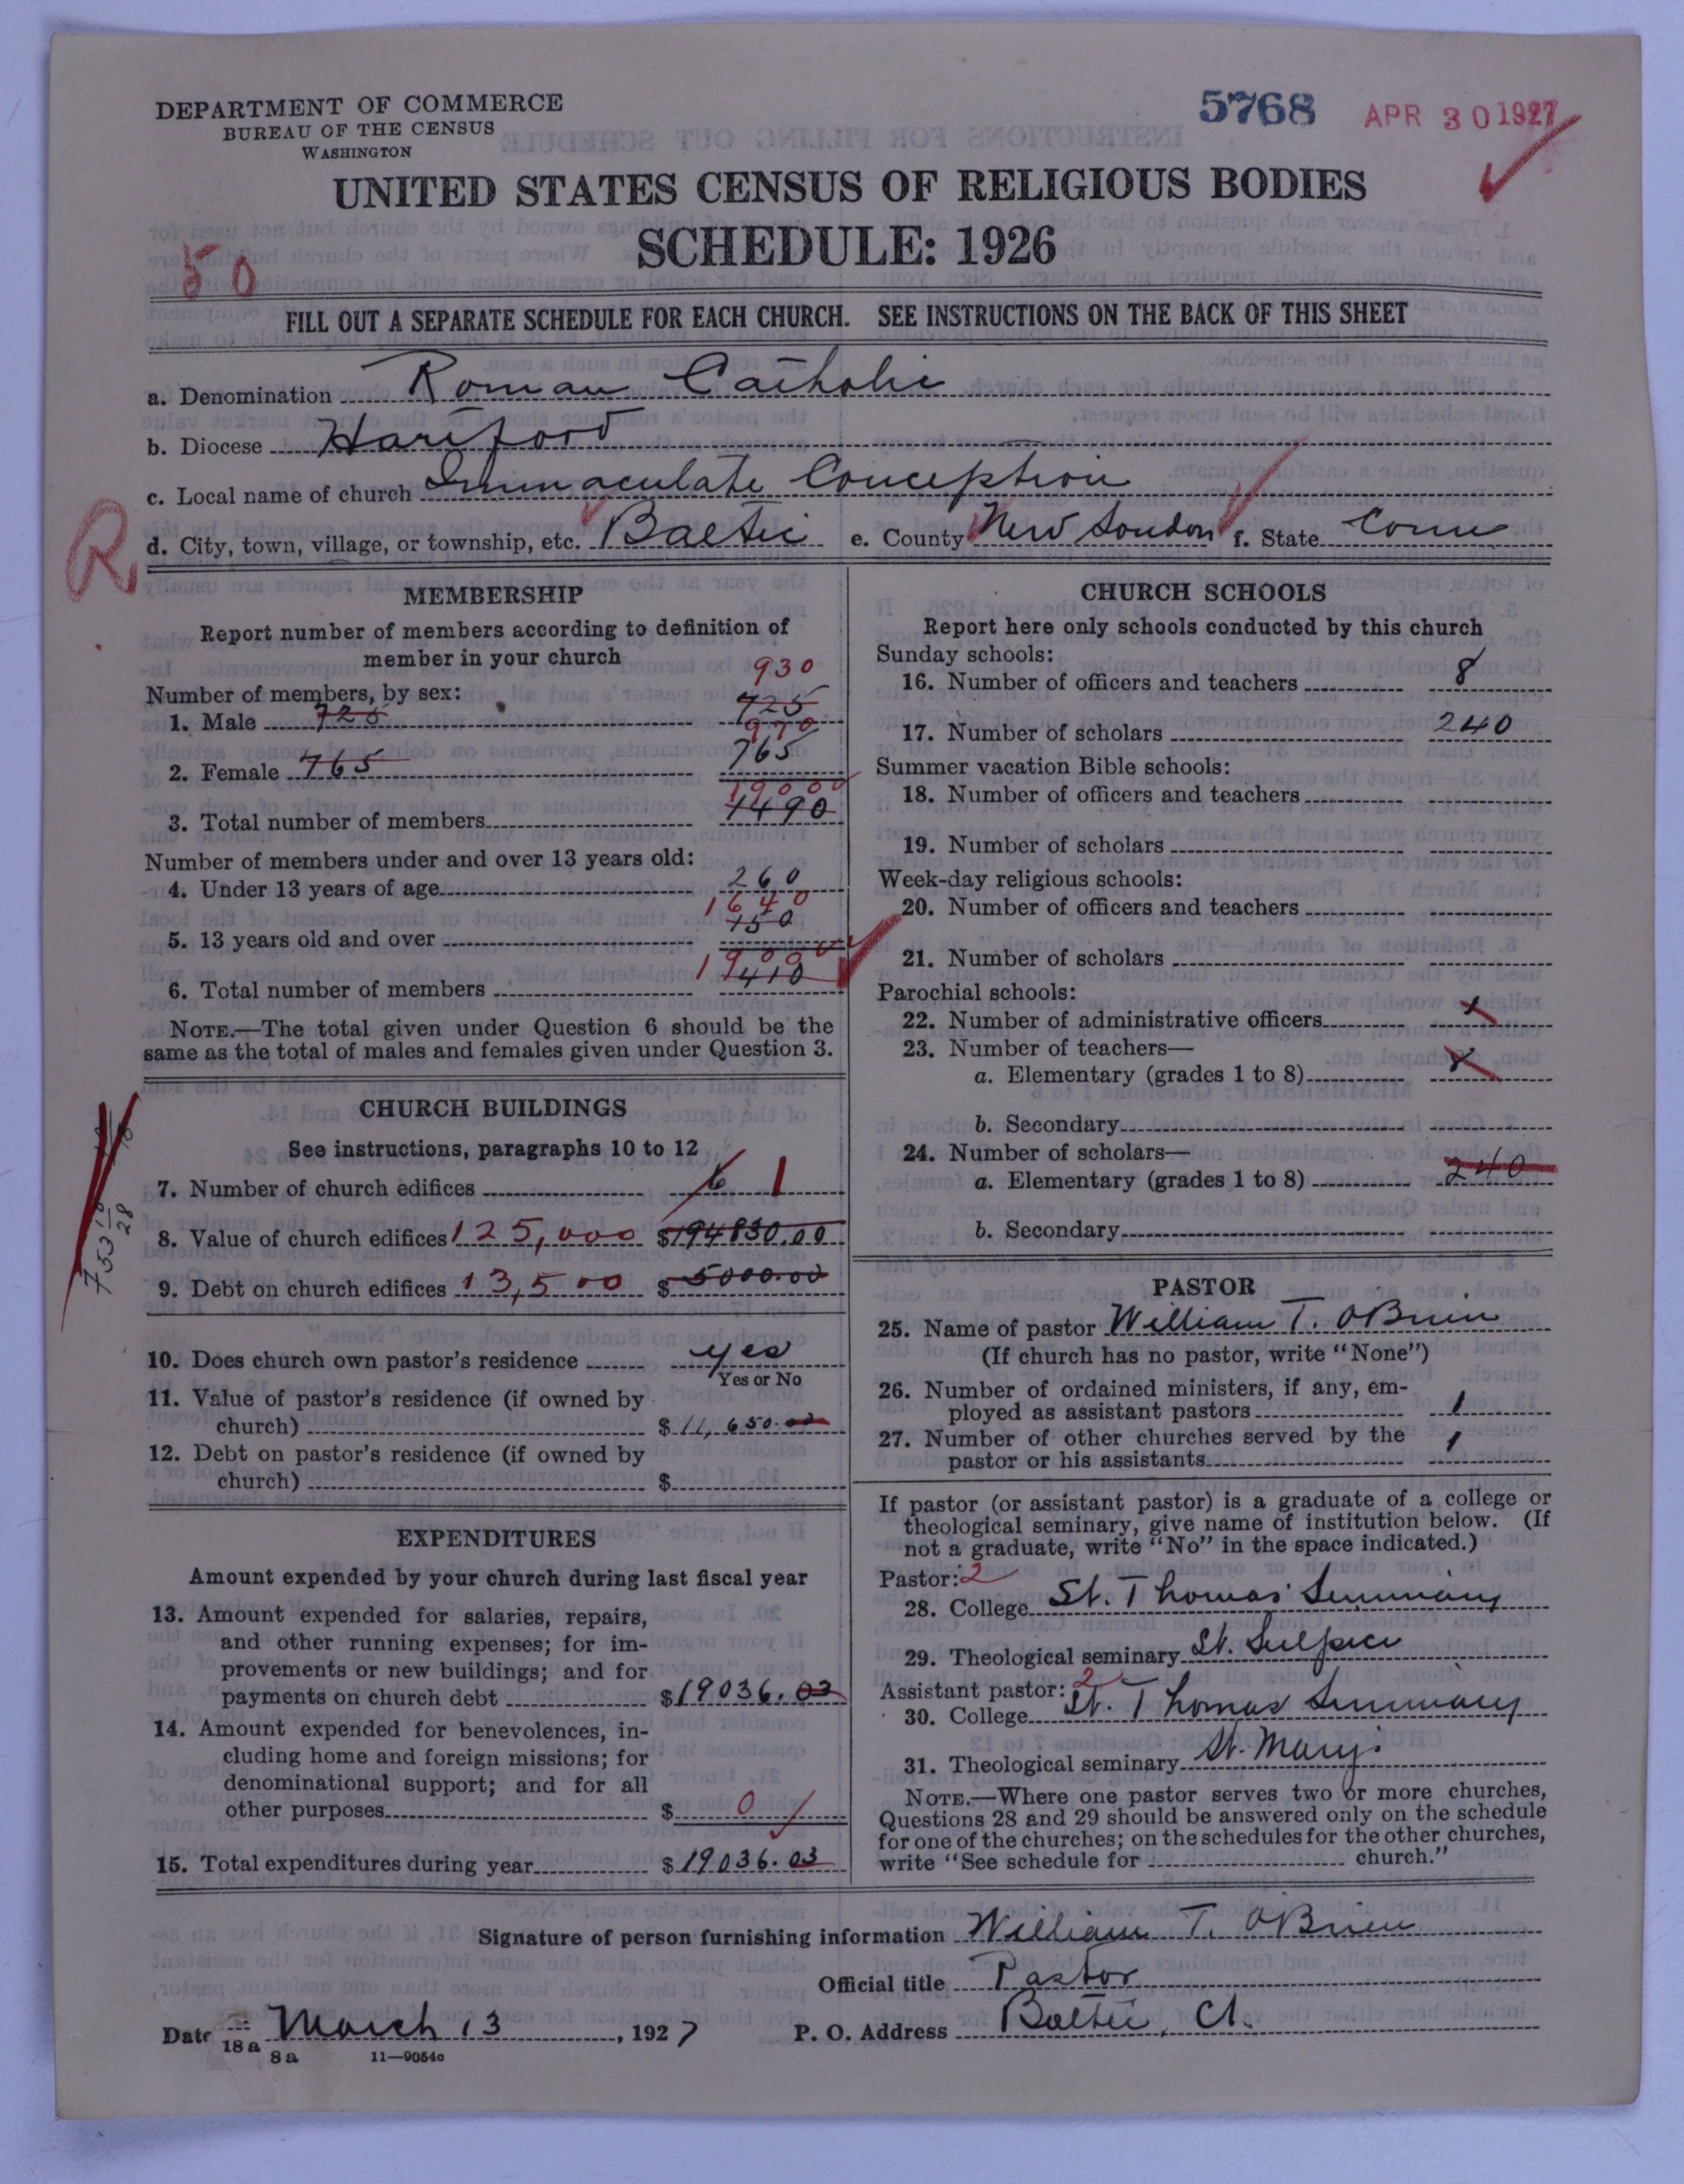 DEPARTMENT OF COMMERCE
BUREAU OF THE CENSUS
WASHINGTON
5768 APR 30 1927
UNITED STATES CENSUS OF RELIGIOUS BODIES
SCHEDULE: 1926
50
FILL OUT A SEPARATE SCHEDULE FOR EACH CHURCH. SEE INSTRUCTIONS ON THE BACK OF THIS SHEET
a. Denomination Roman Catholic
b. Diocese Hartford
c. Local name of church Immaculate Conception
R
d. City, town, village, or township, etc. Baltic e. County New London f. State Conn
MEMBERSHIP
Report number of members according to definition of
member in your church
Number of members, by sex:
930
1. Male 725 725
970
2. Female 765 765
1900
3. Total number of members 1490
Number of members under and over 13 years old:
4. Under 13 years of age 260
1640
5. 13 years old and over 150
1900
6. Total number of members 410
NOTE.—The total given under Question 6 should be the
same as the total of males and females given under Question 3.
CHURCH BUILDINGS
See instructions, paragraphs 10 to 12
7. Number of church edifices 6 1
8. Value of church edifices 125,000 $194830.00
9. Debt on church edifices 13,500 $5000.00
10. Does church own pastor's residence yes
Yes or No
11. Value of pastor's residence (if owned by
church) $11,650.00
12. Debt on pastor's residence (if owned by
church) $
EXPENDITURES
Amount expended by your church during last fiscal year
13. Amount expended for salaries, repairs,
and other running expenses; for im-
provements or new buildings; and for
payments on church debt $19036.03
14. Amount expended for benevolences, in-
cluding home and foreign missions; for
denominational support; and for all
other purposes $ 0
15. Total expenditures during year $19036.03
CHURCH SCHOOLS
Report here only schools conducted by this church
Sunday schools:
16. Number of officers and teachers 8
17. Number of scholars 240
Summer vacation Bible schools:
18. Number of officers and teachers
19. Number of scholars
Week-day religious schools:
20. Number of officers and teachers
21. Number of scholars
Parochial schools:
22. Number of administrative officers
23. Number of teachers—
a. Elementary (grades 1 to 8) 8
b. Secondary
24. Number of scholars—
a. Elementary (grades 1 to 8) 240
b. Secondary
PASTOR
25. Name of pastor William T. OBrien
(If church has no pastor, write "None")
26. Number of ordained ministers, if any, em-
ployed as assistant pastors 1
27. Number of other churches served by the
pastor or his assistants 1
If pastor (or assistant pastor) is a graduate of a college or
theological seminary, give name of institution below. (If
not a graduate, write "No" in the space indicated.)
Pastor: 2
28. College St. Thomas' Seminary
29. Theological seminary St. Sulpice
Assistant pastor: 2
30. College St. Thomas Seminary
31. Theological seminary St. Mary's
NOTE.—Where one pastor serves two or more churches,
Questions 28 and 29 should be answered only on the schedule
for one of the churches; on the schedules for the other churches,
write "See schedule for church."
Signature of person furnishing information William T. OBrien
Official title Pastor
Date March 13, 1927 P. O. Address Baltic, Ct.
18a
8a 11—9054c